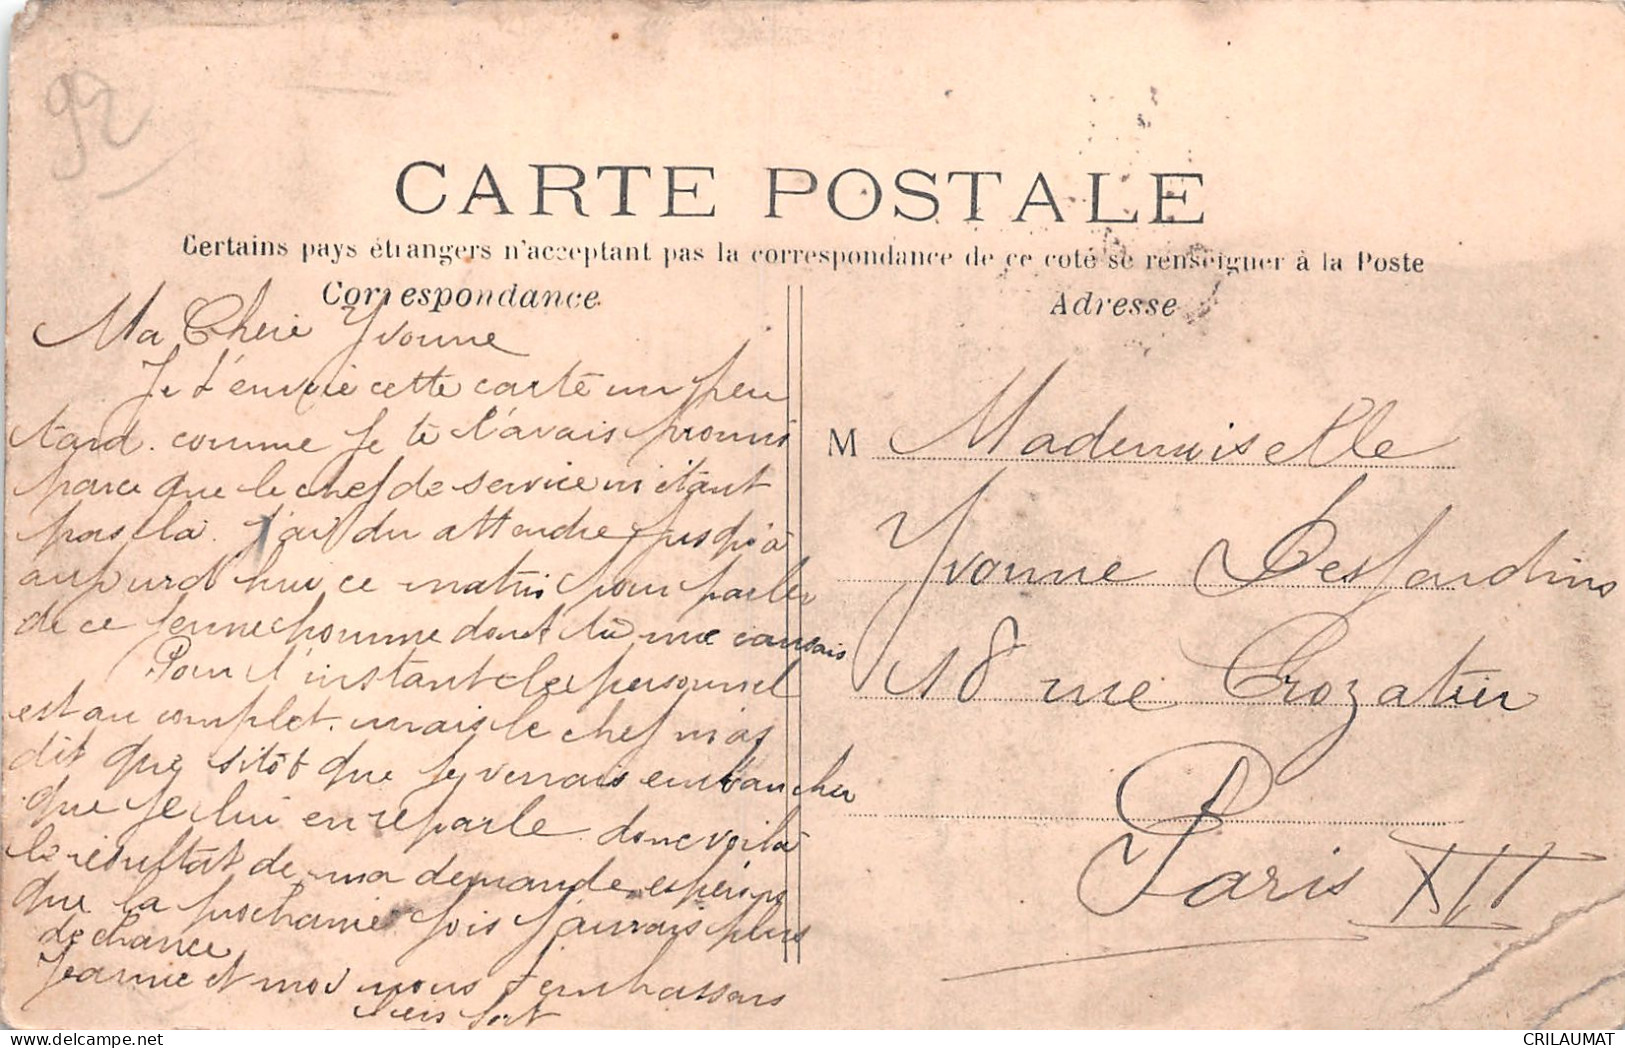 92
CARTE POSTALE
Certains pays étrangers n'acceptant pas la correspondance de ce coté se renseigner à la Poste
Correspondance
Ma Cherie Yvonne
Je t'envoie cette carte un peu
tard. comme je te l'avais promis
parce que le chef de service n'étant
pas là. j'ai du attendre jusqu'à
aujourd'hui ce matin pour parler
de ce jeune homme dont tu me causais
Pour l'instant le personnel
est au complet. mais le chef m'as
dit que sitôt que je verrais embaucher
que je lui en reparle donc voilà
le résultat de ma demande espérons
que la prochaine fois j'aurais plus
de chance
Jeanne et moi nous t'embrassons
bien fort
Adresse
M Mademoiselle
Yvonne Desjardins
18 rue Crozatier
Paris XII
CRILAUMAT